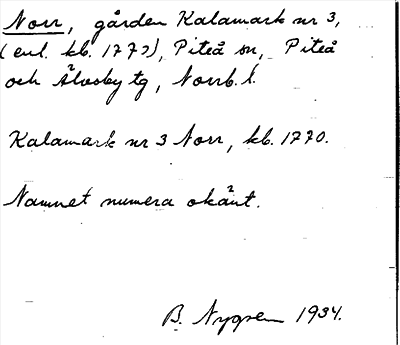 Norr, gården Kalamark nr 3,
(enl. kb. 1770), Piteå sn, Piteå
och Älvsby tg, Norrb. l.
Kalamark nr 3 Norr, kb. 1770.
Namnet numera okänt.
B. Nygren 1934.